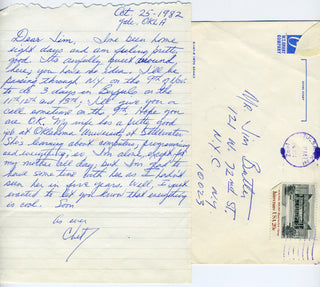 Oct 25-1982
Yale. OKLA
Dear Jim, I've been home
eight days and am feeling pretty
good. Its awfully quiet around
here, you have no idea. I'll be
passing through NY on the 9th of Nov
to do 3 days in Buffalo on the
11th 12th and 13th, I'll give you a
call sometime on the 9th. Hope you
are OK. My wife has a pretty good
job at Oklahoma University at Stillwater
She's learning about computers, programming
and everything, so I'm alone, except for
my mother all day, but I'm glad to
have some time with her as I hadn't
seen her in five years. Well, I just
wanted to let you know that everything
is cool. Soon
as ever
Chet
Mr Jim
121 W. 72nd ST.
N.Y.C. N.Y.
10023
USA 20c